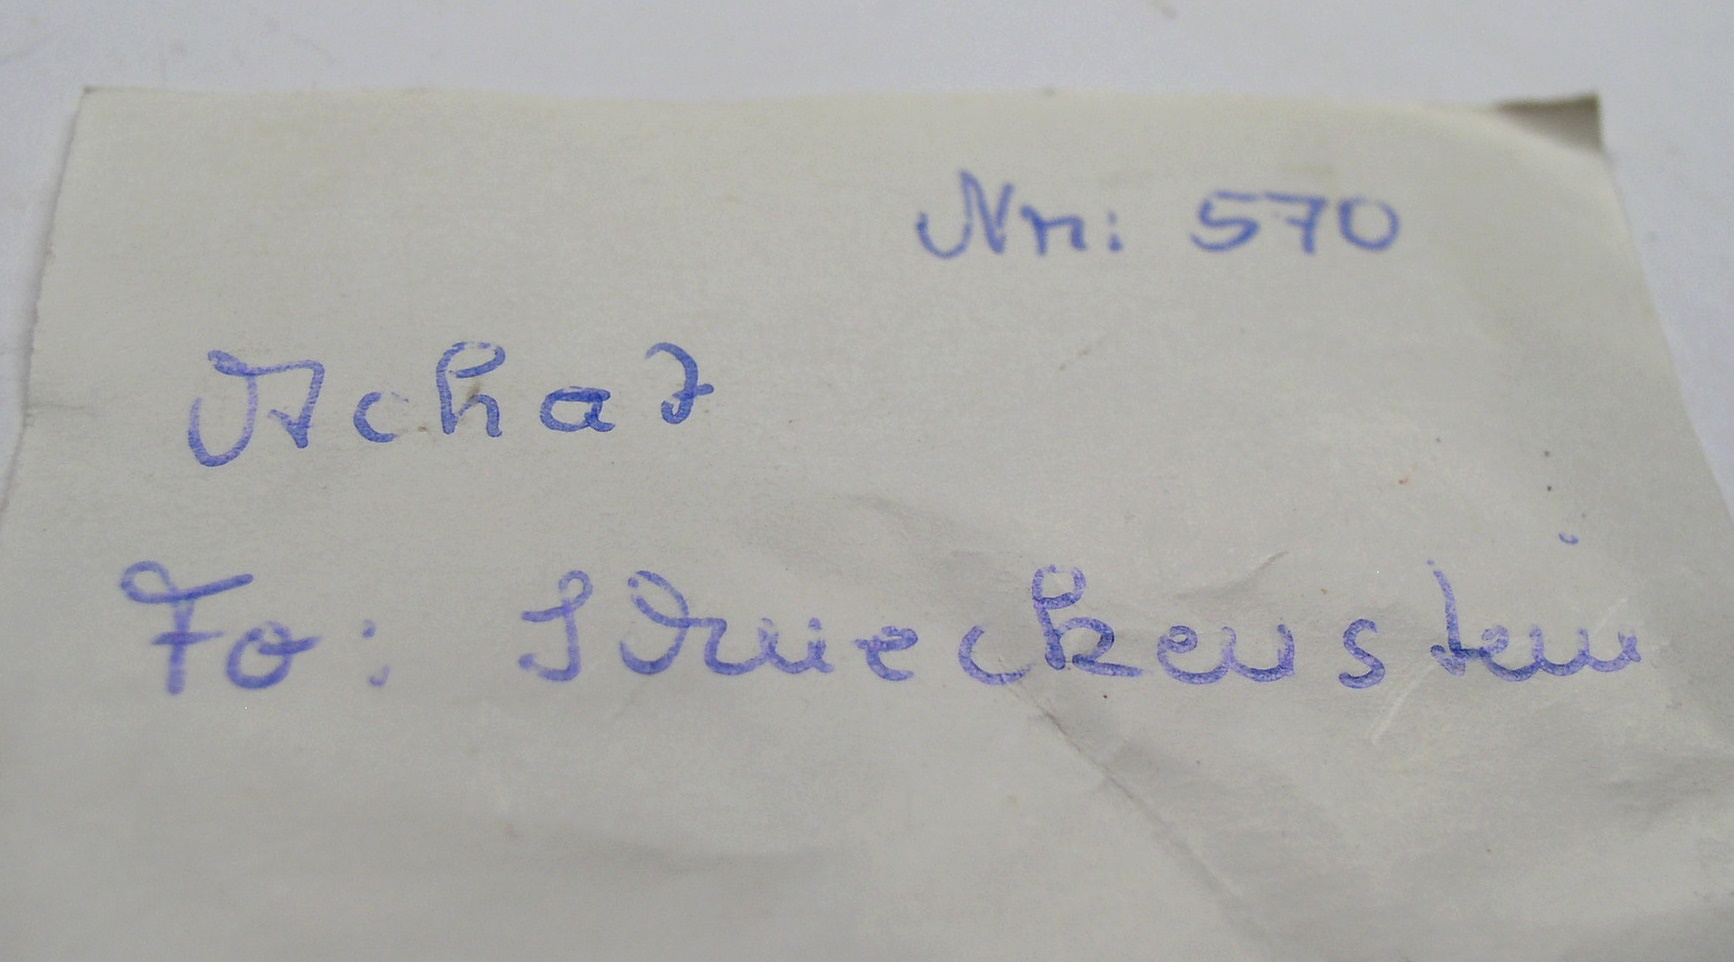 Nr: 570
Achat
Fo: